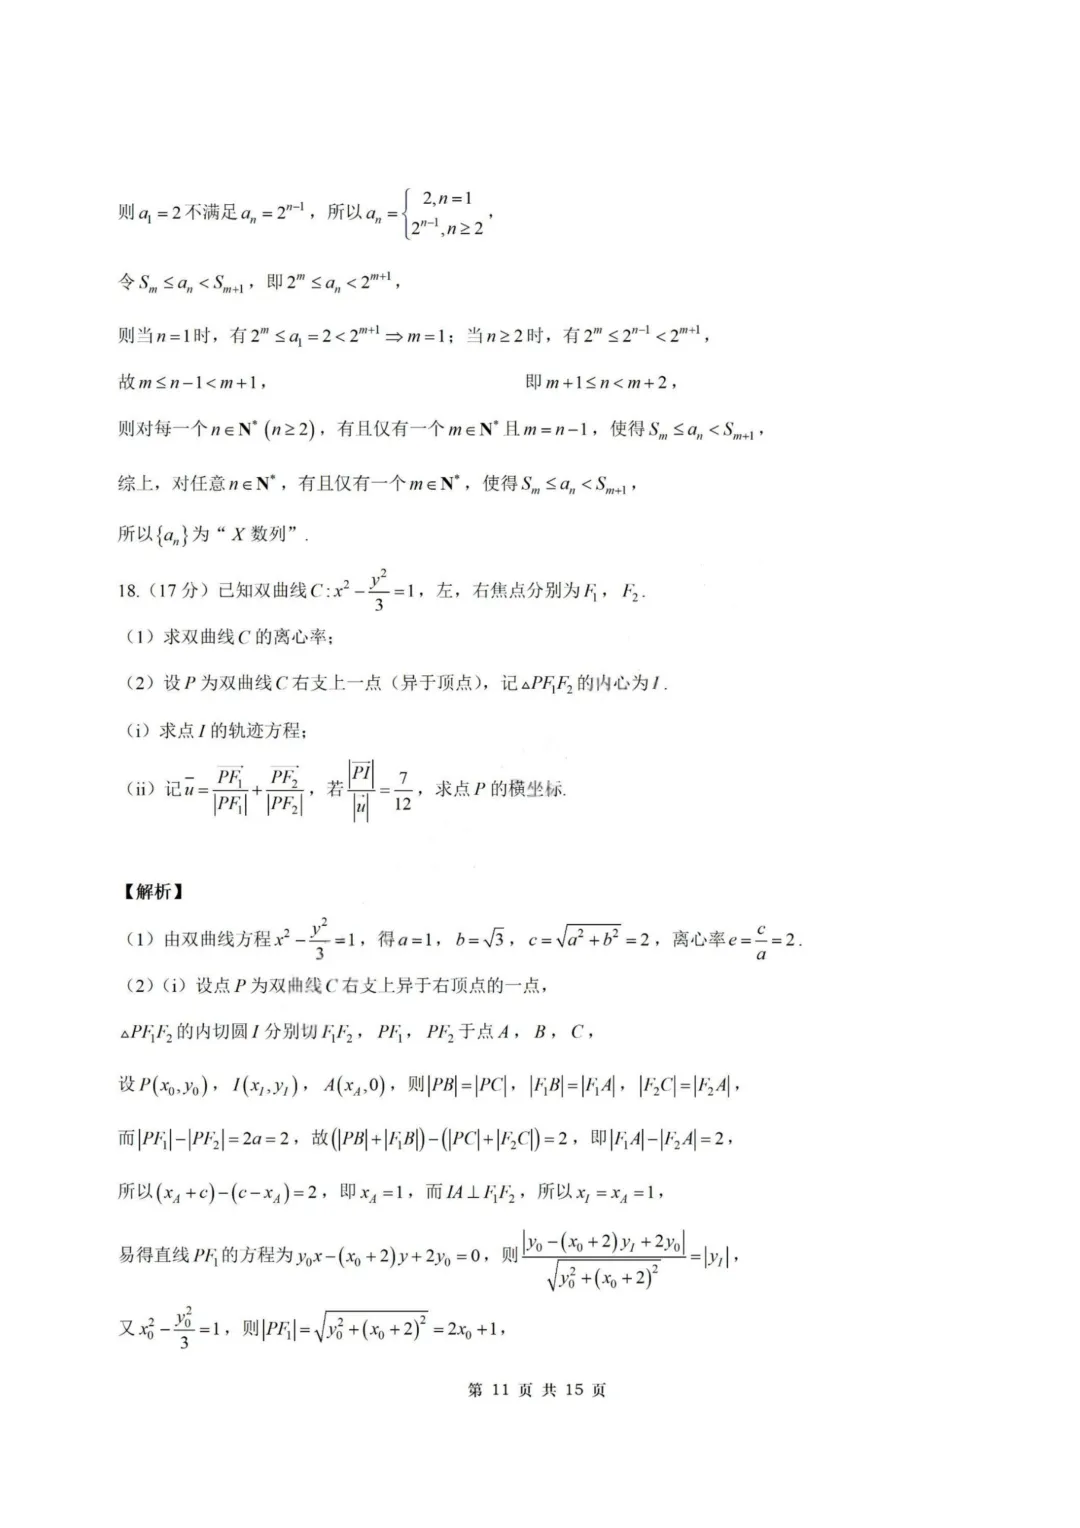 则 a₁ = 2 不满足 aₙ = 2ⁿ⁻¹，所以 aₙ = { 2, n = 1
2ⁿ⁻¹, n ≥ 2 ，
令 Sₘ ≤ aₙ < Sₘ₊₁，即 2ᵐ ≤ aₙ < 2ᵐ⁺¹，
则当 n = 1 时，有 2ᵐ ≤ a₁ = 2 < 2ᵐ⁺¹ ⇒ m = 1；当 n ≥ 2 时，有 2ᵐ ≤ 2ⁿ⁻¹ < 2ᵐ⁺¹，
故 m ≤ n − 1 < m + 1， 即 m + 1 ≤ n < m + 2，
则对每一个 n ∈ N* (n ≥ 2)，有且仅有一个 m ∈ N* 且 m = n − 1，使得 Sₘ ≤ aₙ < Sₘ₊₁，
综上，对任意 n ∈ N*，有且仅有一个 m ∈ N*，使得 Sₘ ≤ aₙ < Sₘ₊₁，
所以 {aₙ} 为“ X 数列”.
18.（17 分）已知双曲线 C : x² − y²/3 = 1，左，右焦点分别为 F₁， F₂.
（1）求双曲线 C 的离心率；
（2）设 P 为双曲线 C 右支上一点（异于顶点），记 △PF₁F₂ 的内心为 I .
（i）求点 I 的轨迹方程；
（ii）记 u⃗ = PF₁⃗/|PF₁⃗| + PF₂⃗/|PF₂⃗|，若 |PI⃗|/|u⃗| = 7/12，求点 P 的横坐标.
【解析】
（1）由双曲线方程 x² − y²/3 = 1，得 a = 1，b = √3，c = √(a² + b²) = 2，离心率 e = c/a = 2 .
（2）（i）设点 P 为双曲线 C 右支上异于右顶点的一点，
△PF₁F₂ 的内切圆 I 分别切 F₁F₂， PF₁， PF₂ 于点 A， B， C，
设 P(x₀, y₀)， I(x_I, y_I)， A(x_A, 0)，则 |PB| = |PC|，|F₁B| = |F₁A|，|F₂C| = |F₂A|，
而 |PF₁| − |PF₂| = 2a = 2，故 (|PB| + |F₁B|) − (|PC| + |F₂C|) = 2，即 |F₁A| − |F₂A| = 2，
所以 (x_A + c) − (c − x_A) = 2，即 x_A = 1，而 IA ⊥ F₁F₂，所以 x_I = x_A = 1，
易得直线 PF₁ 的方程为 y₀x − (x₀ + 2)y + 2y₀ = 0，则 |y₀ − (x₀ + 2)y_I + 2y₀|/√(y₀² + (x₀ + 2)²) = |y_I|，
又 x₀² − y₀²/3 = 1，则 |PF₁| = √(y₀² + (x₀ + 2)²) = 2x₀ + 1，
第 11 页 共 15 页